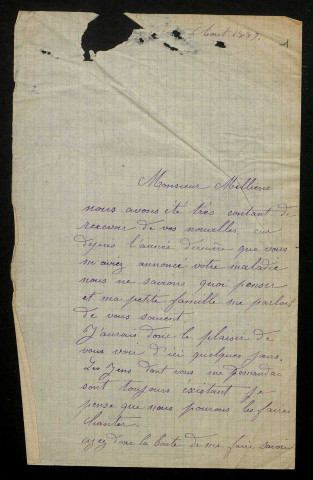 Aout 1887.
1
Monsieur Milliens
nous avons été très contant de
recevoir de vos nouvelles, car
depuis l'année dernière que vous
m'aviez annoncé votre maladie
nous ne savions quoi penser
et ma petite famille me parlait
de vous souvent
J'aurais donc le plaisir de
vous voir d'ici quelques jours.
Les Jens dont vous me demandez
sont toujours existant Je
pense que nous pourons les faire
chanter
ayez donc la bonté de me faire savoir